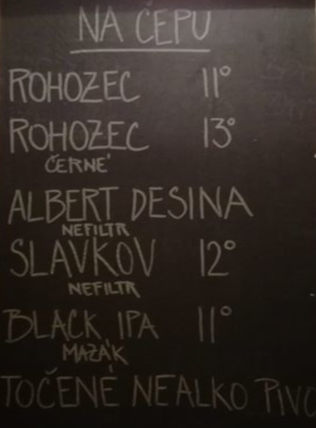 NA ČEPU
ROHOZEC 11°
ROHOZEC 13°
ČERNÉ
ALBERT DESINA
NEFILTR
SLAVKOV 12°
NEFILTR
BLACK IPA 11°
MAZÁK
TOČENÉ NEALKO PIVO